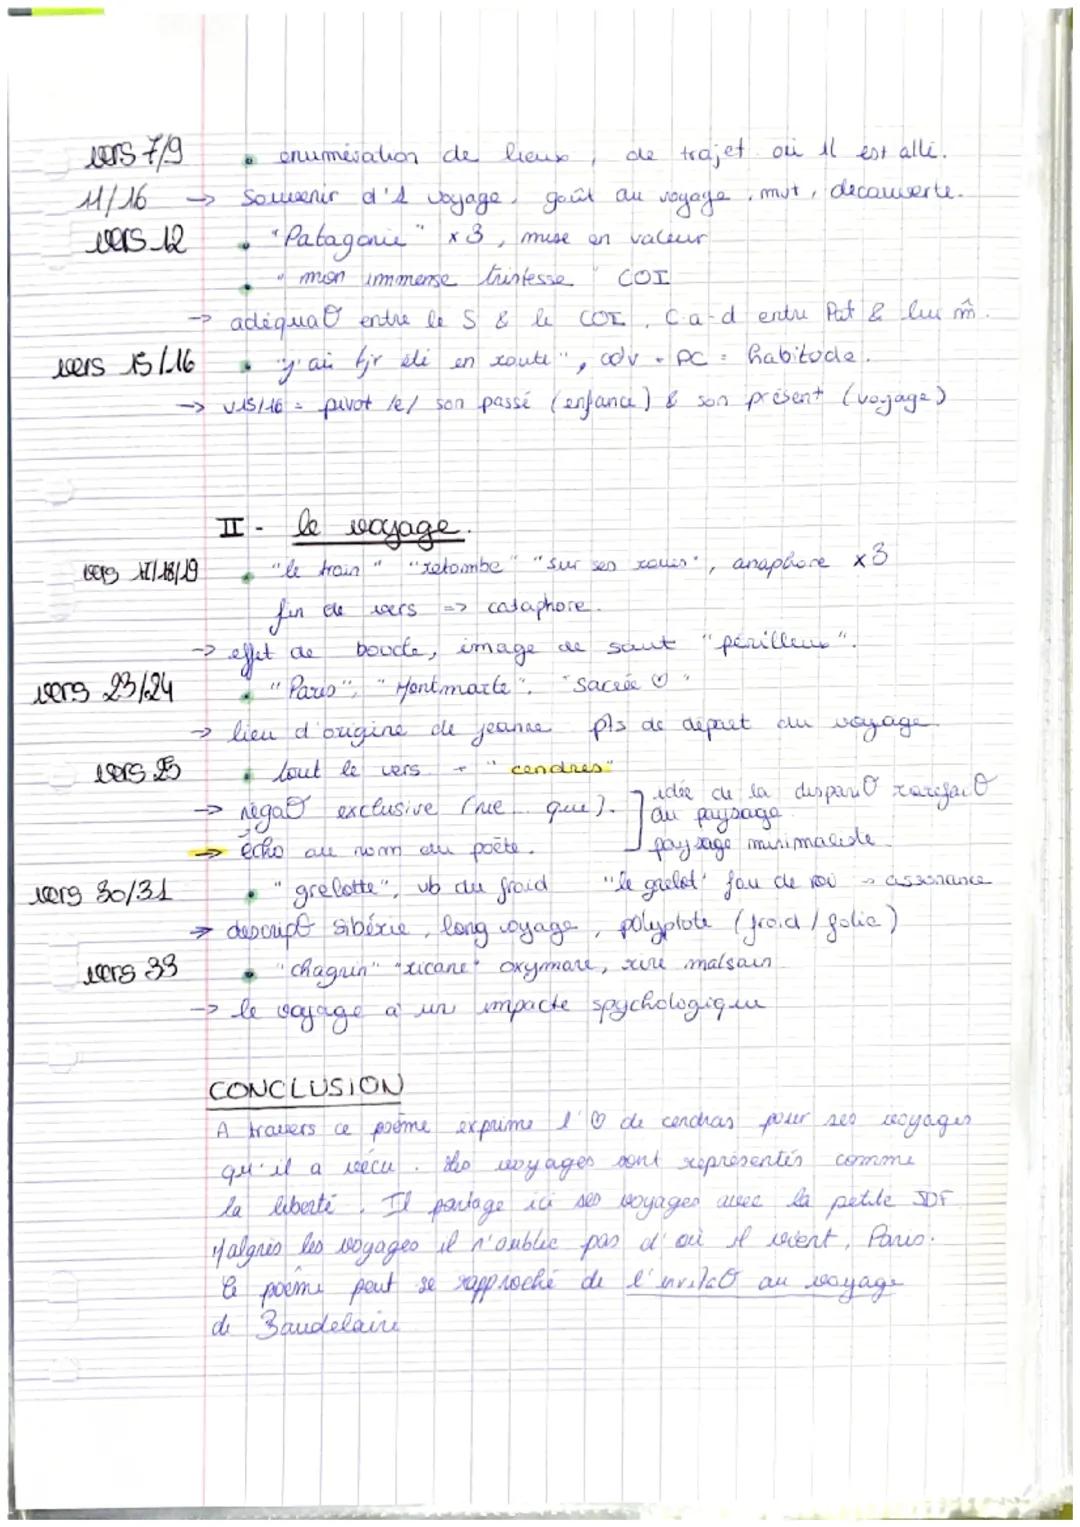 vers 7/9 • enumération de lieux, de trajet où il est allé.
11/16 → Souvenir d'1 voyage, goût au voyage, mvt, decouverte.
vers 12 • "Patagonie" x 3, mise en valeur
• "mon immense tristesse" COI
→ adéquaθ entre le S & le COI, c-a-d entre Pat & lui m̂.
vers 15/16 • "j'ai tjr été en route", adv + PC = habitude.
→ v15/16 = pivot /e/ son passé (enfance) & son présent (voyage)
II - le voyage.
vers 17/18/19 • "le train" "retombe" "sur ses roues", anaphore x3
fin de vers => cataphore.
→ effet de boucle, image de saut "périlleux".
vers 23/24 • "Paris", "Montmarte", "Sacrée ♡"
→ lieu d'origine de jeanne pts de départ du voyage
vers 25 • tout le vers + "cendres"
→ négaθ exclusive (ne... que). idée de la dispariθ rarefaiθ
du paysage
→ écho au nom du poète. paysage minimaliste
vers 30/31 • "grelotte", vb du froid "le grelot" fou de roi → assonance
→ descriptθ Sibérie, long voyage, polyptote (froid / folie)
vers 33 • "chagrin" "ricane" oxymore, rire malsain
→ le voyage à un impacte spychologique
CONCLUSION
A travers ce poème exprime l'♡ de cendras pour ses voyages
qu'il a vécu. Les voyages sont représentés comme
la liberté. Il partage ici ses voyages avec la petite JDF
Malgrés les voyages il n'oublie pas d'où il vient, Paris.
Ce poème peut se rapproché de l'invitaθ au voyage
de Baudelaire